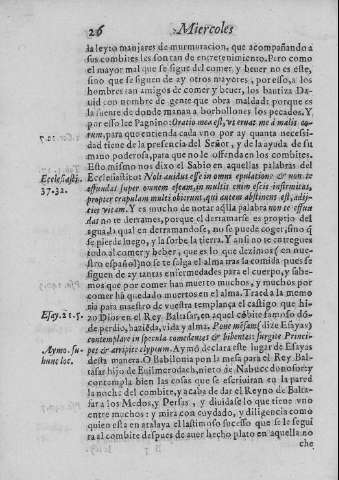 26 Miercoles
la leyto manjares de murmuracion, que acompañando a
sus combites les son tan de entretenimiento. Pero como
el mayor mal que se sigue del comer, y beuer no es este,
sino que se siguen de ay otros mayores, por esso, a los
hombres tan amigos de comer y beuer, los bautiza Da-
uid con nombre de gente que obra maldad: porque es
la fuente de donde manan a borbollones los pecados. Y
por esso lee Pagnino: Oratio mea est, vt eruar me à malis ea-
rum, para que entienda cada vno por ay quanta necessi-
dad tiene de la presencia del Señor, y de la ayuda de su
mano poderosa, para que no le ofendan en los combites.
Esto mismo nos dixo el Sabio en aquellas palabras del
Ecclesiastico: Noli auidus esse in omni epulatione & non te
effundas super omnem escam, in multis enim escis infirmitas,
propter crapulam multi obierunt, qui autem abstinens est, adij-
ciet vitam. Y es mucho de notar aq̃lla palabra non te effun
das no te derrames, porque el derramarse es proprio del
agua, la qual en derramandose, no se puede coger, sino q̃
se pierde luego, y la sorbe la tierra. Y ansi no te entregues
todo al comer y beber, que es lo que dezimos en nues-
tro español) no se te salga el alma tras la comida pues se
siguen de ay tantas enfermedades para el cuerpo, y sabe-
mos que por comer han muerto muchos, y muchos por
comer hã quedado muertos en el alma. Traed a la memo
ria para maestro de vuestra templança el castigo que hi-
zo Dios en el Rey Baltasar, en aquel cõbite famoso dõ-
de perdio, haziẽda, vida y alma. Pone mesam (dize Esayas)
contemplare in specula comedentes & bibentes: surgite Princi-
pes & arripite clypeum. Aymõ declara este lugar de Esayas
desta manera. O Babilonia pon la mesa para el Rey Bal-
tasar hijo de Euilmerodach, nieto de Nabucodonosor: y
contempla bien las cosas que se escriuiran en la pared
la noche del combite, y acaba de dar el Reyno de Balta-
sar a los Medos, y Persas, y diuidaselo que tiene vno
entre muchos: y mira con cuydado, y diligencia como
quien esta en atalaya el lastimoso sucesso que se le segui
ra al combite despues de auer hecho plato en aquella no
che
Ecclesiasti.
37. 32.
Esay. 21. 5.
Aymo. su-
hunc loc.